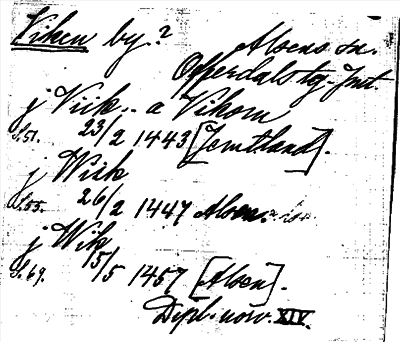 Viken by.?
Alsens sn.
Offerdals tg. Jmt.
j Viik.. a Vikom
S. 51. 23/2 1443 [Jemtland].
j Wiik
S. 55. 26/2 1447 Alsen
j Wik
S. 69. 15/5 1457 [Alsen].
Dipl. norv. XIV.